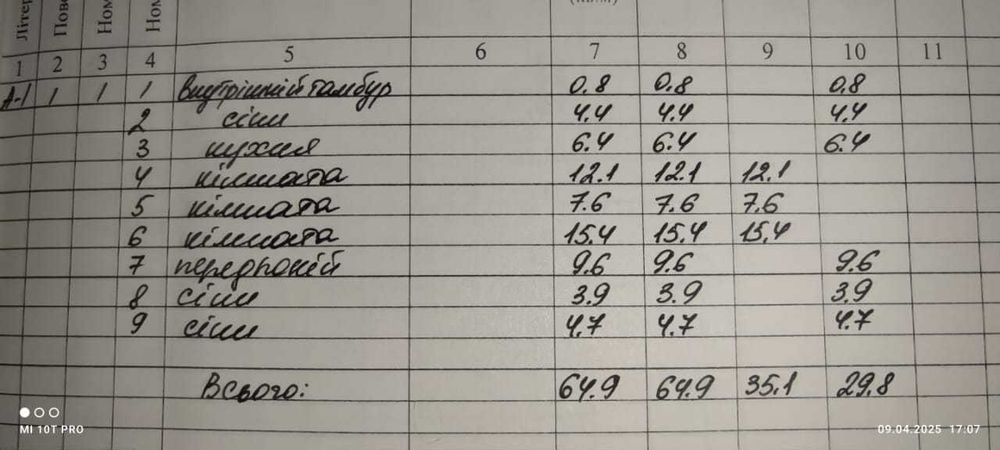 Літер Пове Ном Ном
1 2 3 4 5 6 7 8 9 10 11
А-I 1 1 1 внутрішній тамбур 0.8 0.8 0.8
2 сіни 4.4 4.4 4.4
3 кухня 6.4 6.4 6.4
4 кімната 12.1 12.1 12.1
5 кімната 7.6 7.6 7.6
6 кімната 15.4 15.4 15.4
7 передпокій 9.6 9.6 9.6
8 сіни 3.9 3.9 3.9
9 сіни 4.7 4.7 4.7
Всього: 64.9 64.9 35.1 29.8
MI 10T PRO 09.04.2025 17:07